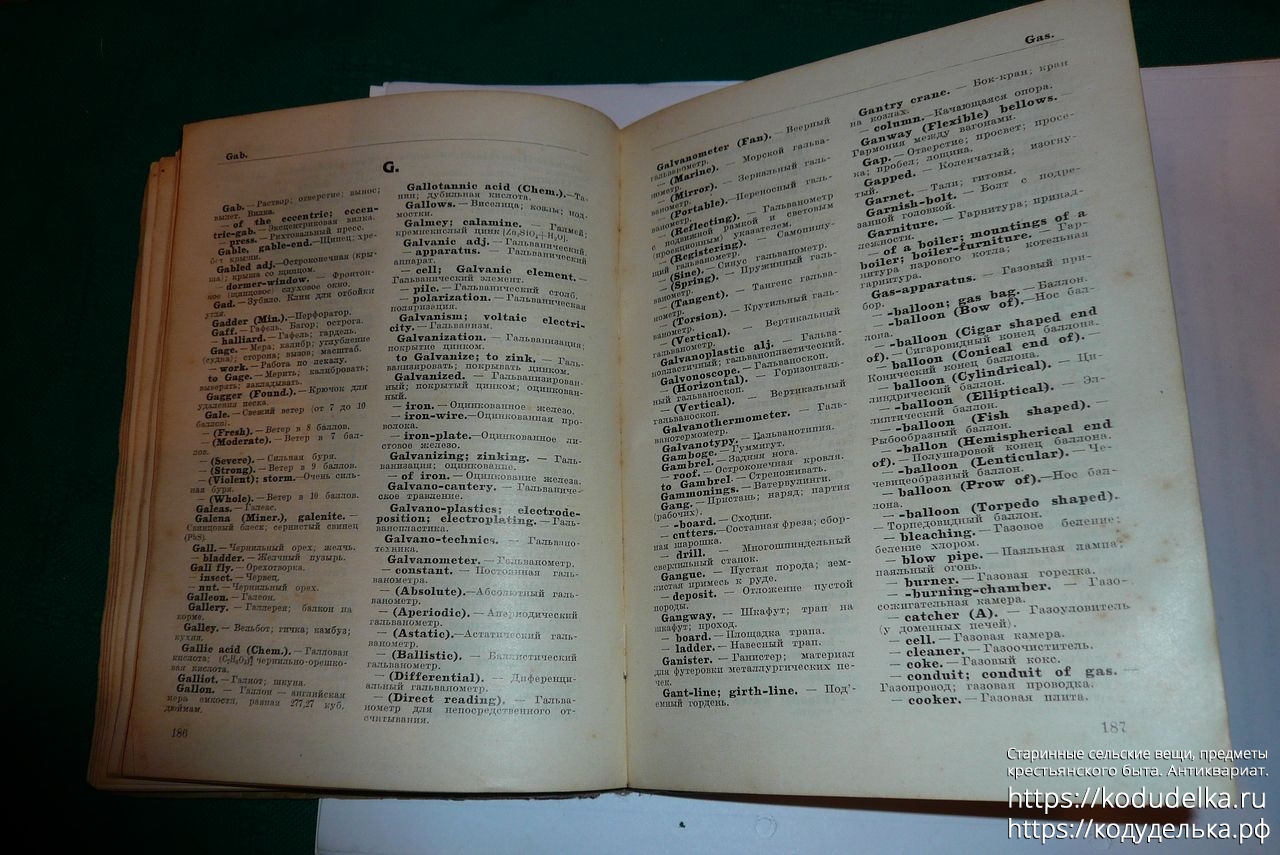 Gab.
G.
Gab. — Раствор; отверстие; вынос;
вылет. Вилка.
— of the eccentric; eccen-
tric-gab. — Эксцентриковая вилка.
— press. — Рихтовальный пресс.
Gable, gable-end. — Щипец; хре-
бет крыши.
Gabled adj. — Остроконечная (кры-
ша); крыша со щипцом.
— dormer-window. — Фронтон-
ное (щипцовое) слуховое окно.
Gad. — Зубило. Клин для отбойки
угля.
Gadder (Min.). — Перфоратор.
Gaff. — Гафель. Багор; острога.
— halliard. — Гафель; гардель.
Gage. — Мера; калибр; углубление
(судна); сторона; вызов; масштаб.
— work. — Работа по лекалу.
to Gage. — Мерить, калибровать;
выверять; закладывать.
Gagger (Found.). — Крючок для
удаления песка.
Gale. — Свежий ветер (от 7 до 10
баллов).
— (Fresh). — Ветер в 8 баллов.
— (Moderate). — Ветер в 7 бал-
лов.
— (Severe). — Сильная буря.
— (Strong). — Ветер в 9 баллов.
— (Violent); storm. — Очень силь-
ная буря.
— (Whole). — Ветер в 10 баллов.
Galeas. — Галеас.
Galena (Miner.), galenite. —
Свинцовый блеск; сернистый свинец
(PbS).
Gall. — Чернильный орех; желчь.
— bladder. — Желчный пузырь.
Gall fly. — Орехотворка.
— insect. — Червец.
— nut. — Чернильный орех.
Galleon. — Галеон.
Gallery. — Галлерея; балкон на
корме.
Galley. — Вельбот; гичка; камбуз;
кухня.
Gallic acid (Chem.). — Галловая
кислота; чернильно-орешко-
вая кислота.
Galliot. — Галиот; шкуна.
Gallon. — Галлон — английская
мера емкости, равная 277,27 куб.
дюймам.
186
Gallotannic acid (Chem.). — Та-
нин; дубильная кислота.
Gallows. — Виселица; козлы; под-
мостки.
Galmey; calamine. — Галмей;
кремнекислый цинк [Zn₂SiO₄+H₂O].
Galvanic adj. — Гальванический.
— apparatus. — Гальванический
аппарат.
— cell; Galvanic element. —
Гальванический элемент.
— pile. — Гальванический столб.
— polarization. — Гальваническая
поляризация.
Galvanism; voltaic electri-
city. — Гальванизм.
Galvanization. — Гальванизация;
покрытие цинком.
to Galvanize; to zink. — Галь-
ванизировать; покрывать цинком.
Galvanized. — Гальванизирован-
ный; покрытый цинком; оцинкован-
ный.
— iron. — Оцинкованное железо.
— iron-wire. — Оцинкованная про-
волока.
— iron-plate. — Оцинкованное ли-
стовое железо.
Galvanizing; zinking. — Галь-
ванизация; оцинкование.
— of iron. — Оцинкование железа.
Galvano-cantery. — Гальваниче-
ское травление.
Galvano-plastics; electrode-
position; electroplating. — Галь-
ванопластика.
Galvano-technics. — Гальвано-
техника.
Galvanometer. — Гальванометр.
— constant. — Постоянная галь-
ванометра.
— (Absolute). — Абсолютный галь-
ванометр.
— (Aperiodic). — Апериодический
гальванометр.
— (Astatic). — Астатический галь-
ванометр.
— (Ballistic). — Баллистический
гальванометр.
— (Differential). — Диференци-
альный гальванометр.
— (Direct reading). — Гальва-
нометр для непосредственного от-
считывания.
Gas.
Galvanometer (Fan). — Веерный
гальванометр.
— (Marine). — Морской гальва-
нометр.
— (Mirror). — Зеркальный галь-
ванометр.
— (Portable). — Переносный галь-
ванометр.
— (Reflecting). — Гальванометр
с подвижной рамкой и световым
(проекционным) указателем.
— (Registering). — Самопишу-
щий гальванометр.
— (Sine). — Синус гальванометр.
— (Spring). — Пружинный галь-
ванометр.
— (Tangent). — Тангенс гальва-
нометр.
— (Torsion). — Крутильный галь-
ванометр.
— (Vertical). — Вертикальный
гальванометр.
Galvanoplastic alj. — Гальва-
нопластичный; гальванопластический.
Galvonoscope. — Гальваноскоп.
— (Horizontal). — Горизонталь
ный гальваноскоп.
— (Vertical). — Вертикальный
гальваноскоп.
Galvanothermometer. — Галь-
ванотермометр.
Galvanotypy. — Гальванотипия.
Gamboge. — Гуммигут.
Gambrel. — Задняя нога.
— roof. — Остроконечная кровля.
to Gambrel. — Стреноживать.
Gammonings. — Ватервулинги.
Gang. — Пристань; наряд; партия
(рабочих).
— -board. — Сходни.
— cutters. — Составная фреза; сбор-
ная шарошка.
— drill. — Многошпиндельный
сверлильный станок.
Gangue. — Пустая порода; зем-
листая примесь к руде.
— deposit. — Отложение пустой
породы.
Gangway. — Шкафут; трап на
шкафут; проход.
— board. — Площадка трапа.
— ladder. — Навесный трап.
Ganister. — Ганистер; материал
для футеровки металлургических пе-
чек.
Gant-line; girth-line. — Под'-
емный гордень.
Gantry crane. — Бок-кран; кран
на козлах.
— column. — Качающаяся опора.
Ganway (Flexible) bellows. —
Гармония между вагонами.
Gap. — Отверстие; просвет; просе-
ка; пробел; лощина.
Gapped. — Коленчатый; изогну-
тый.
Garnet. — Тали; гитовы.
Garnish-bolt. — Болт с подре-
занной головкой.
Garniture. — Гарнитура; принад-
лежности.
— of a boiler; mountings of a
boiler; boiler-furniture. — Гар-
нитура парового котла; котельная
гарнитура.
Gas-apparatus. — Газовый при-
бор.
— -balloon; gas bag. — Баллон.
— -balloon (Bow of). — Нос бал-
лона.
— -balloon (Cigar shaped end
of). — Сигаровидный конец баллона.
— balloon (Conical end of). —
Конический конец баллона.
— balloon (Cylindrical). — Ци-
линдрический баллон.
— -balloon (Elliptical). — Эл-
липтический баллон.
— -balloon (Fish shaped). —
Рыбообразный баллон.
— -ballon (Hemispherical end
of). — Полушаровой конец баллона.
— -balloon (Lenticular). — Че-
чевицеобразный баллон.
— balloon (Prow of). — Нос бал-
лона.
— -balloon (Torpedo shaped).
— Торпедовидный баллон.
— bleaching. — Газовое беление;
беление хлором.
— blow pipe. — Паяльная лампа;
паяльный огонь.
— burner. — Газовая горелка.
— -burning-chamber. — Газо-
сожигательная камера.
— catcher (A). — Газоуловитель
(у доменных печей).
— cell. — Газовая камера.
— cleaner. — Газоочиститель.
— coke. — Газовый кокс.
— conduit; conduit of gas. —
Газопровод; газовая проводка.
— cooker. — Газовая плита.
187
Старинные сельские вещи, предметы
крестьянского быта. Антиквариат.
https://kodudelka.ru
https://кодуделька.рф